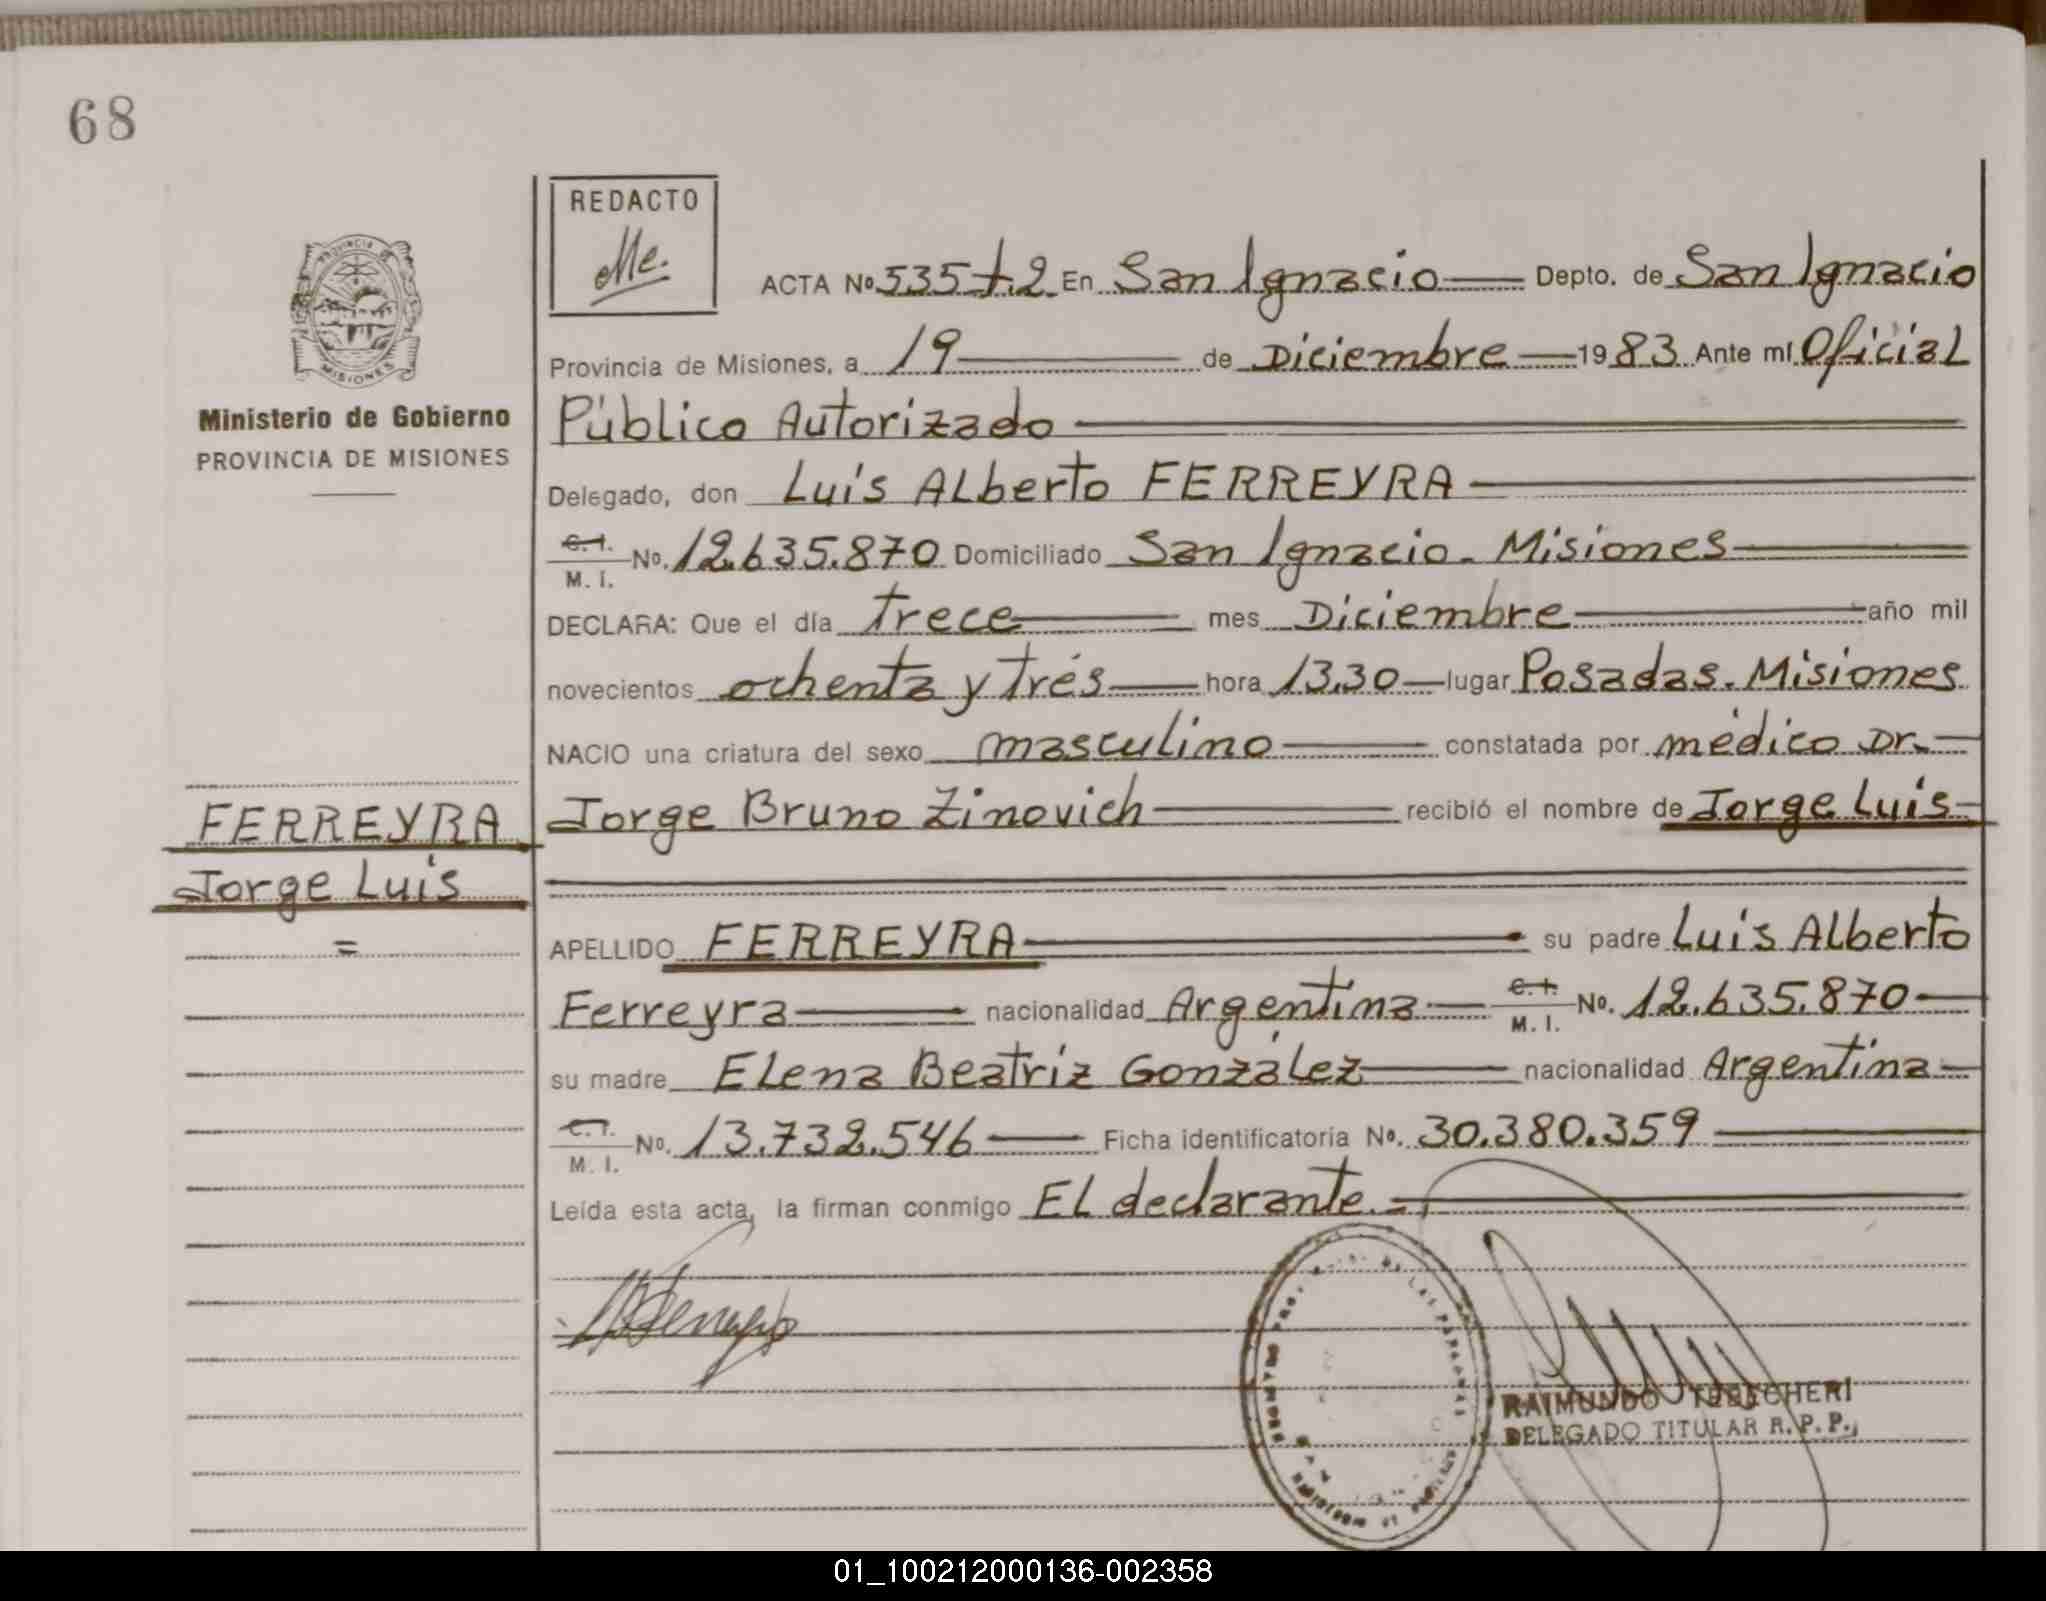 68
REDACTO
Me.
PROVINCIA DE
MISIONES
Ministerio de Gobierno
PROVINCIA DE MISIONES
ACTA Nº 535 t.2 En San Ignacio Depto. de San Ignacio
Provincia de Misiones, a 19 de Diciembre 1983 Ante mí Oficial
Público Autorizado
Delegado, don Luis Alberto FERREYRA
C.I. M.I. Nº. 12.635.870 Domiciliado San Ignacio - Misiones
DECLARA: Que el día trece mes Diciembre año mil
novecientos ochenta y trés hora 13.30 lugar Posadas. Misiones
NACIO una criatura del sexo masculino constatada por médico Dr.
Jorge Bruno Zinovich recibió el nombre de Jorge Luis
FERREYRA
Jorge Luis
=
APELLIDO FERREYRA su padre Luis Alberto
Ferreyra nacionalidad Argentina C.I. M.I. Nº. 12.635.870
su madre Elena Beatriz González nacionalidad Argentina
C.I. M.I. Nº. 13.732.546 Ficha identificatoria Nº. 30.380.359
Leída esta acta, la firman conmigo El declarante.=
DE LAS PERSONAS
RAIMUNDO TEBECHERI
DELEGADO TITULAR R.P.P.
01_100212000136-002358